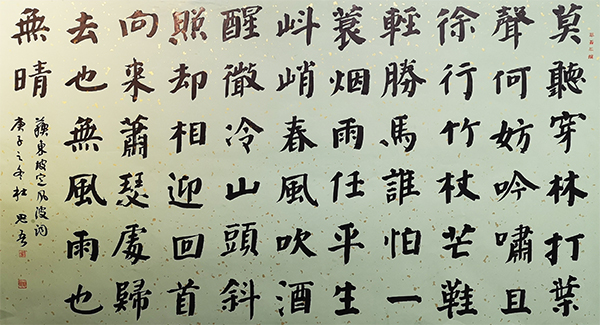 莫聽穿林打葉
聲何妨吟嘯且
徐行竹杖芒鞋
輕勝馬誰怕一
蓑烟雨任平生
料峭春風吹酒
醒微冷山頭斜
照却相迎回首
向来蕭瑟處歸
去也無風雨也
無晴
蘇東坡定風波詞
庚子之冬杜